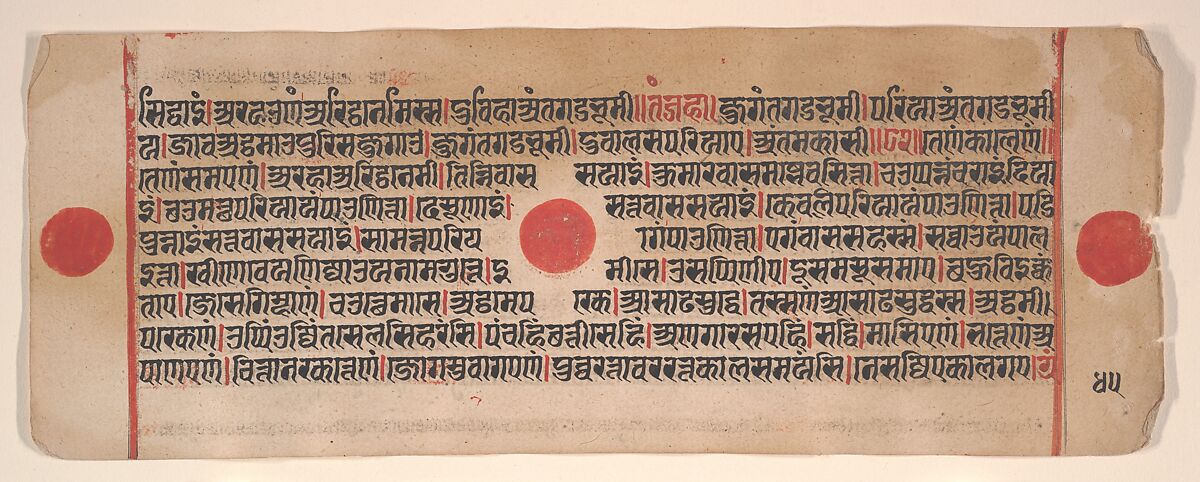 सिद्धाइं।अरहउणंअरिट्ठनेमिस्स।दुविहाअंतगडभूमी॥तंजहा॥जुगंतगडभूमी।परियाअंतगडभूमी
य।जावअट्ठमाउपुरिसजुगाउ।जुगंतगडभूमी।दुवालसपरियाए।अंतमकासी॥तेणंकालेणं॥
तेणंसमएणं।अरहाअरिट्ठनेमी।तिन्निवास सयाइं।कुमारवासमज्झेवसित्ता।चउपन्नंचराइंदिया
इं।छउमत्थपरियायंपाउणित्ता।देसूणाइं। सत्तवाससयाइं।केवलिपरियायंपाउणित्ता।पडि
पुन्नाइंसत्तवाससयाइं।सामन्नपरिय गंपाउणित्ता।एगंवाससहस्सं।सव्वाउयंपाल
इत्ता।खीणेवेयणिज्जाउयनामगुत्ते।इ मीसे।उसप्पिणीए।दूसमसूसमाए।बहुविइक्कं
ताए।जेसेगिम्हाणं।चउत्थेमासे।अट्ठमेप रके।आसाढसुद्धे।तस्सणंआसाढसुद्धस्स।अट्ठमी।
पारकेणं।उप्पिंउज्जिंतसेलसिहरंसि।पंचहिंछत्तीसेहिं।अणगारसएहिं।सद्धिं।मासिएणं।भत्तेणंअ
पाणएणं।चित्तानरकत्तेणं।जोगमुवागएणं।पुव्वरत्तावरत्तकालसमयंसि।नेसज्जिएकालगए।
४५